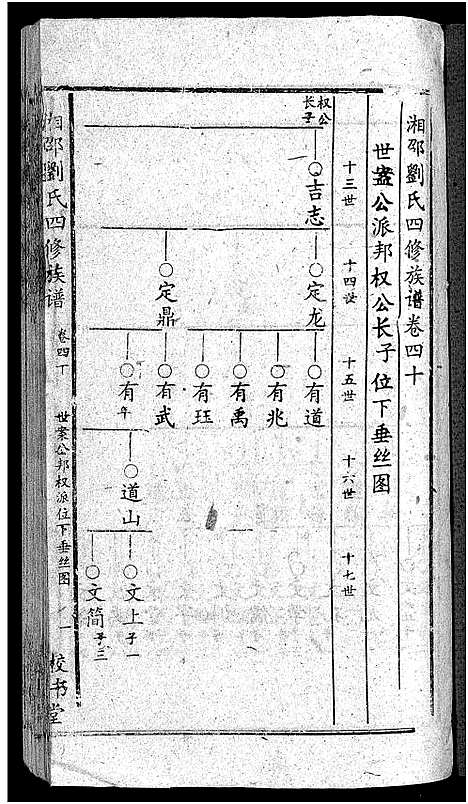 湘邵劉氏四修族谱卷四十
世盗公派邦权公长子位下垂丝图
十三世
十四世
十五世
十六世
十七世
权公
长子
○吉志
○定龙
○定鼎
○有道
○有兆
○有禹
○有珏
○有武
○有年
○道山
○文上 子一
○文简 子三
湘邵劉氏四修族谱
卷四丁
世案公邦权派位下垂丝图
一
校书堂